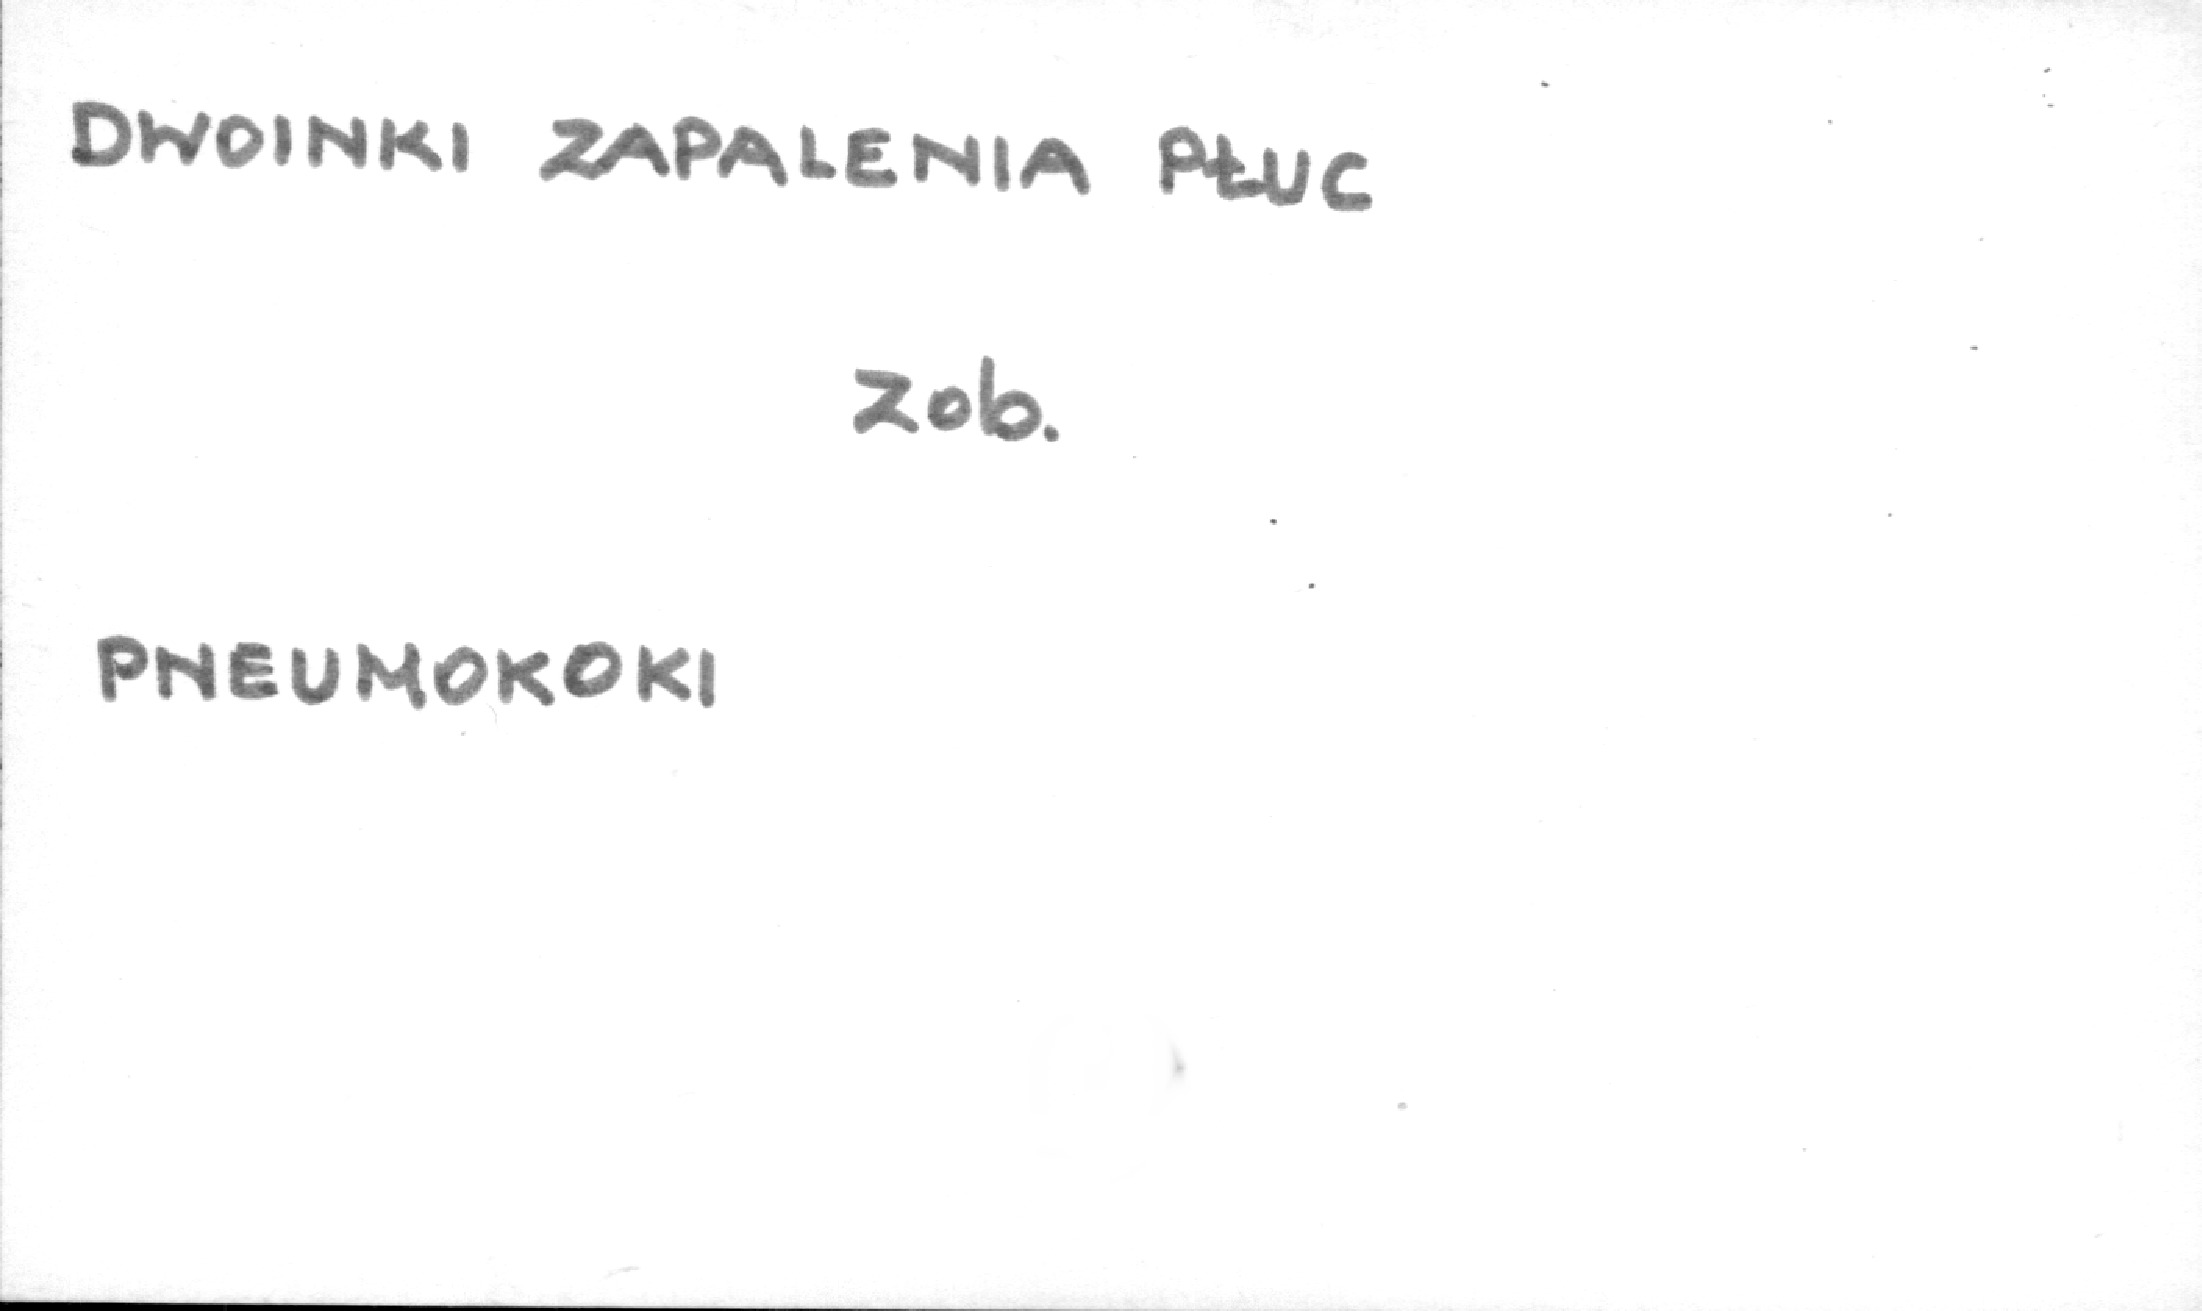 DWOINKI ZAPALENIA PŁUC
Zob.
PNEUMOKOKI